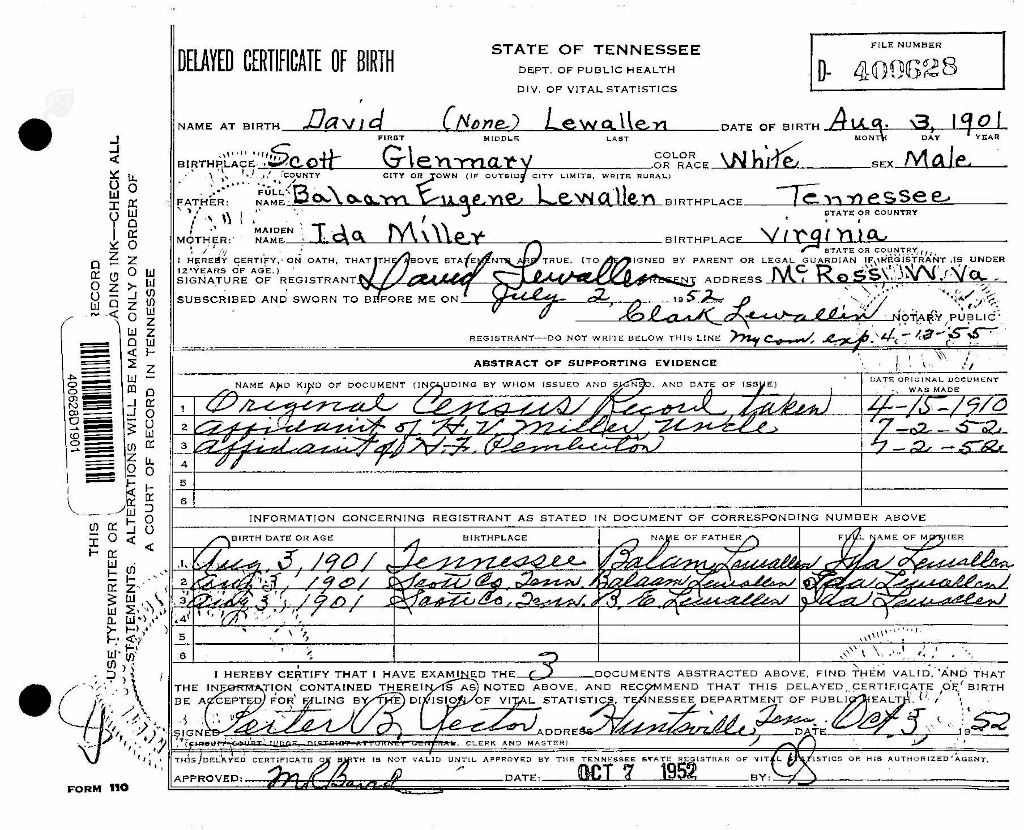 DELAYED CERTIFICATE OF BIRTH
STATE OF TENNESSEE
DEPT. OF PUBLIC HEALTH
DIV. OF VITAL STATISTICS
FILE NUMBER
D- 400628
NAME AT BIRTH David (None) Lewallen DATE OF BIRTH Aug. 3, 1901
FIRST MIDDLE LAST MONTH DAY YEAR
BIRTHPLACE Scott Glenmary COLOR OR RACE White SEX Male
COUNTY CITY OR TOWN (IF OUTSIDE CITY LIMITS, WRITE RURAL)
FATHER: FULL NAME Balaam Eugene Lewallen BIRTHPLACE Tennessee
STATE OR COUNTRY
MOTHER: MAIDEN NAME Ida Miller BIRTHPLACE Virginia
STATE OR COUNTRY
I HEREBY CERTIFY, ON OATH, THAT THE ABOVE STATEMENTS ARE TRUE. (TO BE SIGNED BY PARENT OR LEGAL GUARDIAN IF REGISTRANT IS UNDER
12 YEARS OF AGE.)
SIGNATURE OF REGISTRANT David Lewallen PRESENT ADDRESS McRoss W. Va
SUBSCRIBED AND SWORN TO BEFORE ME ON July 2, 1952
Clark Lewallen NOTARY PUBLIC
REGISTRANT—DO NOT WRITE BELOW THIS LINE My com. exp. 4-13-55
ABSTRACT OF SUPPORTING EVIDENCE
NAME AND KIND OF DOCUMENT (INCLUDING BY WHOM ISSUED AND SIGNED, AND DATE OF ISSUE) DATE ORIGINAL DOCUMENT WAS MADE
1 Original Census Record taken 4-15-1910
2 Affidavit of H.V. Miller Uncle 7-2-52
3 Affidavit of H.F. Pemberton 7-2-52
4
5
6
INFORMATION CONCERNING REGISTRANT AS STATED IN DOCUMENT OF CORRESPONDING NUMBER ABOVE
BIRTH DATE OR AGE BIRTHPLACE NAME OF FATHER FULL NAME OF MOTHER
1 Aug. 3, 1901 Tennessee Balam Lewallen Ida Lewallen
2 Aug. 3, 1901 Scott Co, Tenn. Balaam Lewallen Ida Lewallen
3 Aug 3, 1901 Scott Co, Tenn. B. E. Lewallen Ida Lewallen
4
5
6
I HEREBY CERTIFY THAT I HAVE EXAMINED THE 3 DOCUMENTS ABSTRACTED ABOVE, FIND THEM VALID, AND THAT
THE INFORMATION CONTAINED THEREIN IS AS NOTED ABOVE, AND RECOMMEND THAT THIS DELAYED CERTIFICATE OF BIRTH
BE ACCEPTED FOR FILING BY THE DIVISION OF VITAL STATISTICS, TENNESSEE DEPARTMENT OF PUBLIC HEALTH.
SIGNED Porter B. Rector ADDRESS Huntsville, Tenn DATE Oct 3, 1952
(CIRCUIT COURT JUDGE, DISTRICT ATTORNEY GENERAL, CLERK AND MASTER)
THIS DELAYED CERTIFICATE OF BIRTH IS NOT VALID UNTIL APPROVED BY THE TENNESSEE STATE REGISTRAR OF VITAL STATISTICS OR HIS AUTHORIZED AGENT.
APPROVED: DATE: OCT 7 1952 BY:
FORM 110
THIS RECORD
USE TYPEWRITER OR ADING INK—CHECK ALL
STATEMENTS. ALTERATIONS WILL BE MADE ONLY ON ORDER OF
A COURT OF RECORD IN TENNESSEE
400628D1901